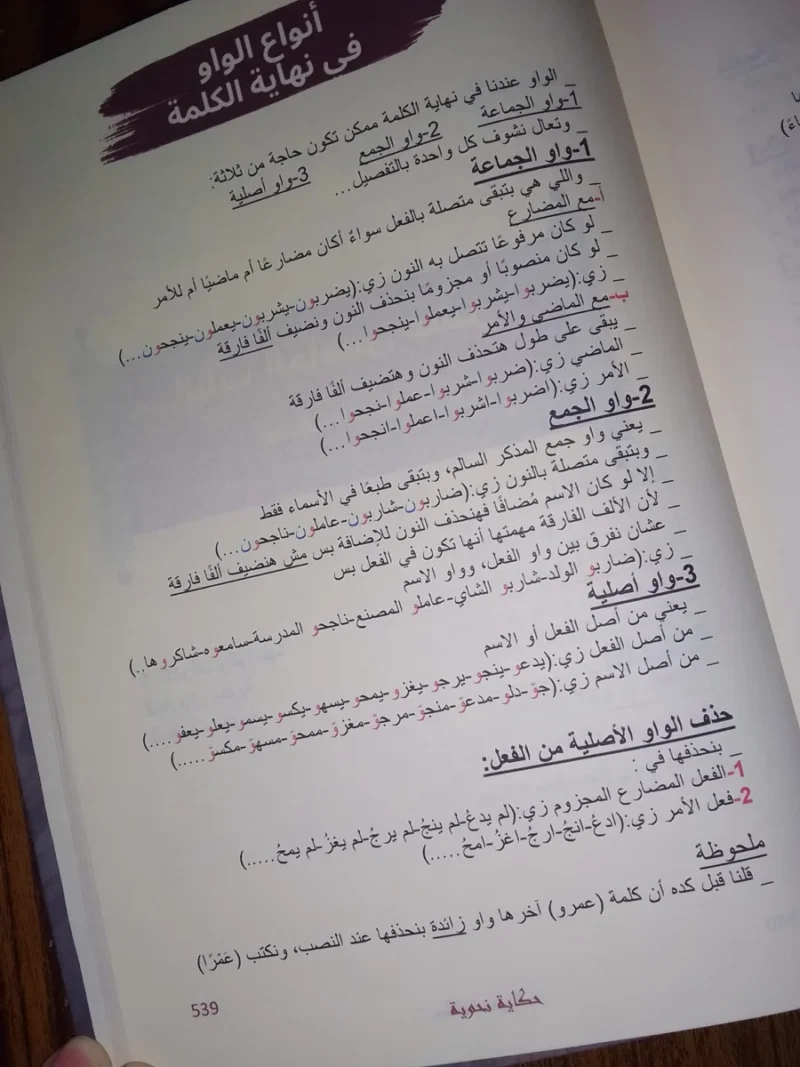 أنواع الواو
في نهاية الكلمة
_ الواو عندنا في نهاية الكلمة ممكن تكون حاجة من ثلاثة:
1-واو الجماعة 2-واو الجمع 3-واو أصلية
_ وتعال نشوف كل واحدة بالتفصيل...
1-واو الجماعة
_ واللي هي بتبقى متصلة بالفعل سواءً أكان مضارعًا أم ماضيًا أم للأمر
أ-مع المضارع
_ لو كان مرفوعًا تتصل به النون زي:(يضربون-يشربون-يعملون-ينجحون...)
_ لو كان منصوبًا أو مجزومًا بنحذف النون ونضيف ألفًا فارقة
_ زي:(يضربوا-يشربوا-يعملوا-ينجحوا...)
ب-مع الماضي والأمر
_ يبقى على طول هتحذف النون وهتضيف ألفًا فارقة
_ الماضي زي:(ضربوا-شربوا-عملوا-نجحوا...)
_ الأمر زي:(اضربوا-اشربوا-اعملوا-انجحوا...)
2-واو الجمع
_ يعني واو جمع المذكر السالم، وبتبقى طبعًا في الأسماء فقط
_ وبتبقى متصلة بالنون زي:(ضاربون-شاربون-عاملون-ناجحون...)
_ إلا لو كان الاسم مُضافًا فهنحذف النون للإضافة بس مش هنضيف ألفًا فارقة
_ لأن الألف الفارقة مهمتها أنها تكون في الفعل بس
_ عشان نفرق بين واو الفعل، وواو الاسم
_ زي:(ضاربو الولد-شاربو الشاي-عاملو المصنع-ناجحو المدرسة-سامعوه-شاكروها..)
3-واو أصلية
_ يعني من أصل الفعل أو الاسم
_ من أصل الفعل زي:(يدعو-ينجو-يرجو-يغزو-يمحو-يسهو-يكسو-يسمو-يعلو-يعفو....)
_ من أصل الاسم زي:(جوّ-دلو-مدعوّ-منجوّ-مرجوّ-مغزوّ-ممحوّ-مسهوّ-مكسوّ.....)
حذف الواو الأصلية من الفعل:
_ بنحذفها في :
1-الفعل المضارع المجزوم زي:(لم يدعُ-لم ينجُ-لم يرجُ-لم يغزُ-لم يمحُ.....)
2-فعل الأمر زي:(ادعُ-انجُ-ارجُ-اغزُ-امحُ.....)
ملحوظة
_ قلنا قبل كده أن كلمة (عمرو) آخرها واو زائدة بنحذفها عند النصب، ونكتب (عَمْرًا)
حكاية نحوية
539